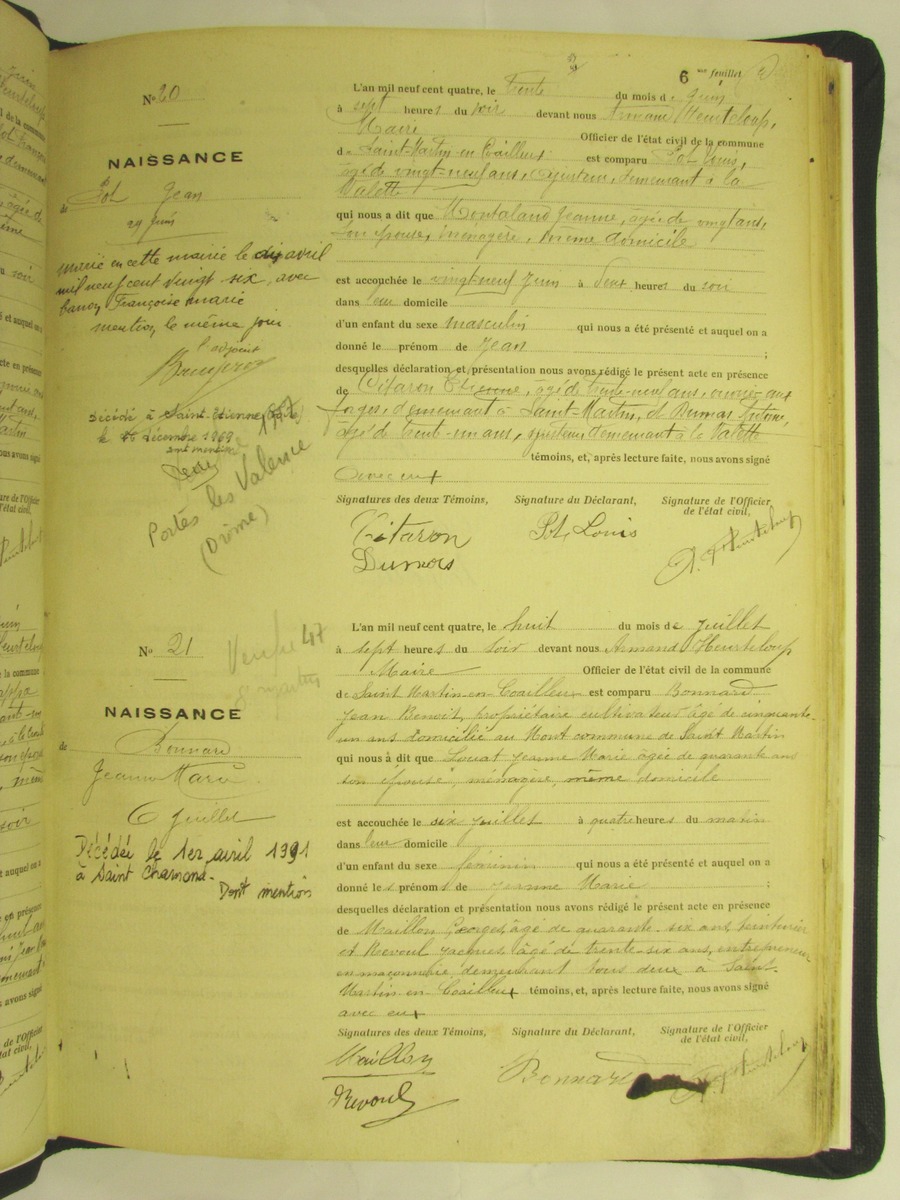 6 me feuillet
N° 20
NAISSANCE
de Pot Jean
29 Juin
marié en cette mairie le dix avril
mil neuf cent vingt six, avec
Françoise Marie
mention le même jour
l'adjoint
Décédé à Saint-Etienne
le 16 décembre 1969
dont mention
Portes les Valence
(Drôme)
L'an mil neuf cent quatre, le Trente du mois de Juin
à sept heures du soir devant nous Armand Heurteloup,
Maire Officier de l'état civil de la commune
de Saint-Martin-en-Coailleux est comparu Pot Louis,
âgé de vingt-neuf ans, ajusteur, demeurant à la
Valette
qui nous a dit que Montaland Jeanne, âgée de vingt ans,
son épouse, ménagère, même domicile
est accouchée le vingt-neuf Juin à Deux heures du soir
dans leur domicile
d'un enfant du sexe masculin qui nous a été présenté et auquel on a
donné le prénom de Jean ;
desquelles déclaration et présentation nous avons rédigé le présent acte en présence
de Citaron Etienne, âgé de trente-neuf ans, ouvrier aux
forges, demeurant à Saint-Martin, et Dumas Antoine,
âgé de trente-un ans, ajusteur, demeurant à la Valette
témoins, et, après lecture faite, nous avons signé
avec eux
Signatures des deux Témoins, Signature du Déclarant, Signature de l'Officier
de l'état civil,
Citaron Pot Louis A. Heurteloup
N° 21
47
NAISSANCE
de Bonnard
Jeanne Marie
6 Juillet
Décédée le 1er avril 1991
à Saint Chamond.
Dont mention
L'an mil neuf cent quatre, le huit du mois de Juillet
à sept heures du soir devant nous Armand Heurteloup
Maire Officier de l'état civil de la commune
de Saint Martin-en-Coailleux est comparu Bonnard
Jean Benoit, propriétaire cultivateur âgé de cinquante-
un ans domicilié au Mont commune de Saint Martin
qui nous a dit que Louat Jeanne Marie âgée de quarante ans
son épouse, ménagère, même domicile
est accouchée le six juillet à quatre heures du matin
dans leur domicile
d'un enfant du sexe féminin qui nous a été présenté et auquel on a
donné les prénoms de Jeanne Marie ;
desquelles déclaration et présentation nous avons rédigé le présent acte en présence
de Maillon Georges, âgé de quarante-six ans, teinturier
et Revoul Jacques âgé de trente-six ans, entrepreneur
en maçonnerie, demeurant tous deux à Saint-
Martin-en-Coailleux témoins, et, après lecture faite, nous avons signé
avec eux
Signatures des deux Témoins, Signature du Déclarant, Signature de l'Officier
de l'état civil,
Maillon Bonnard A. Heurteloup
Revoul